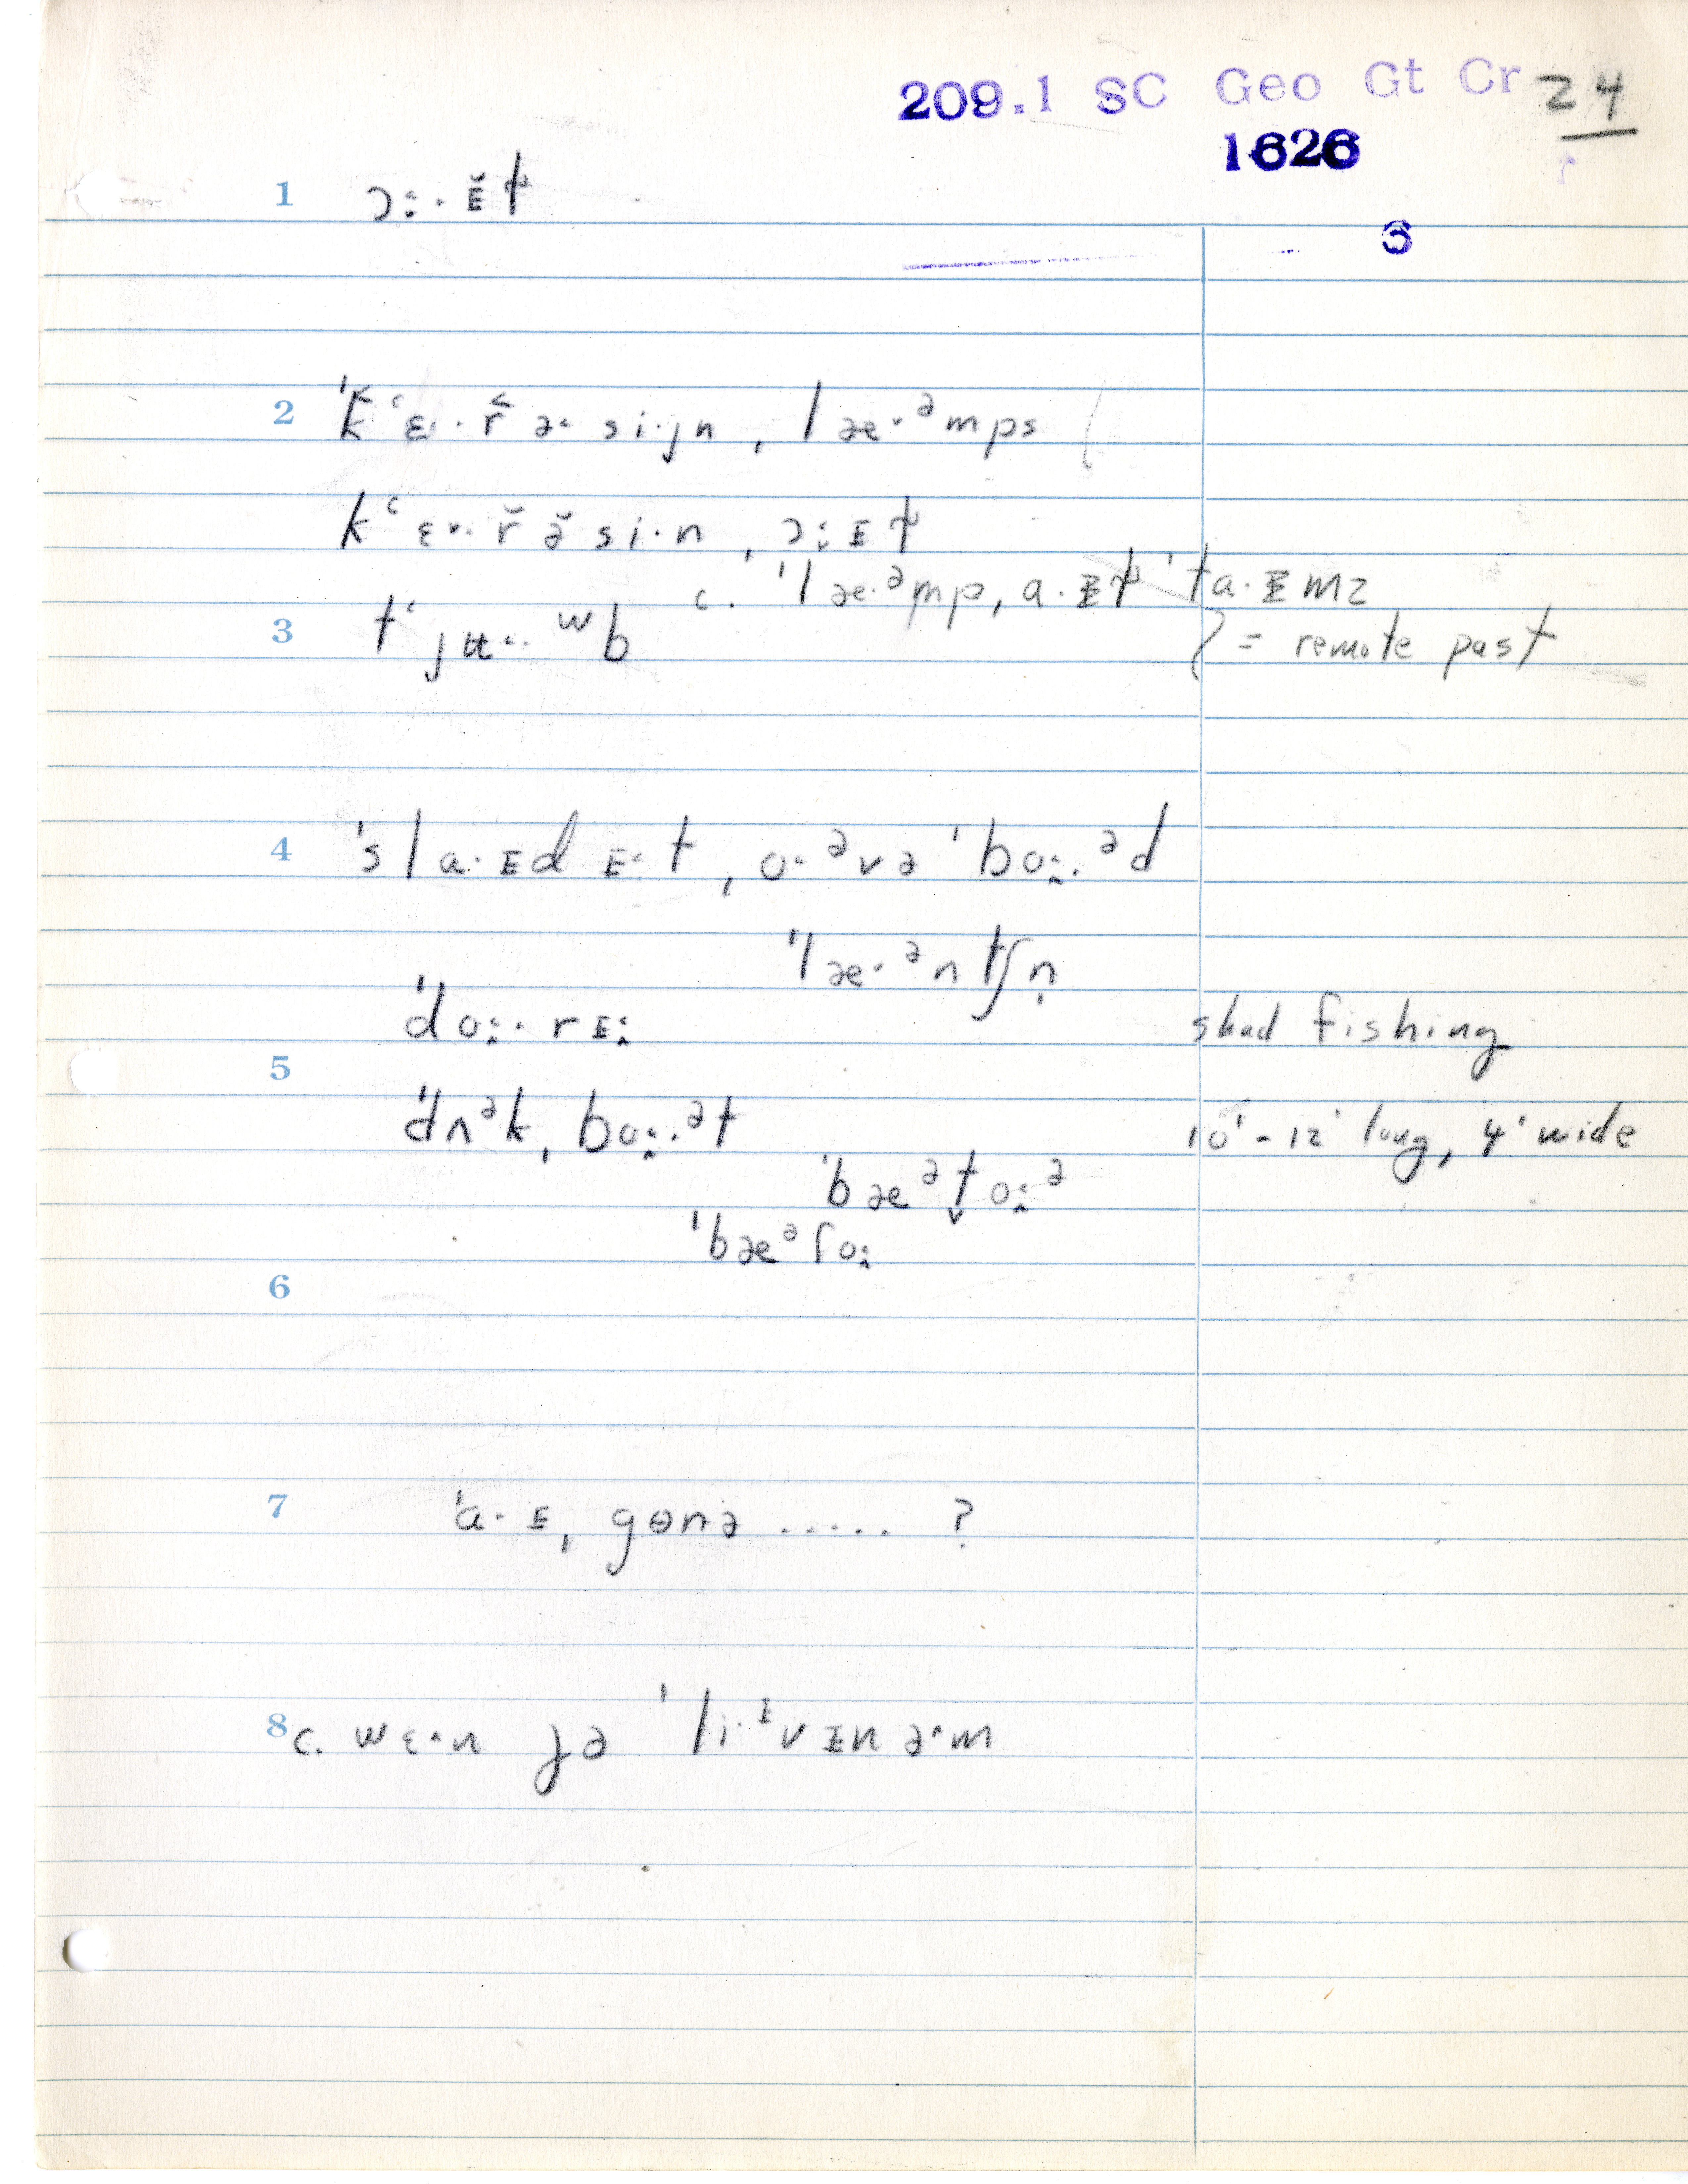 209.1 SC Geo Gt Cr 24
1626
3
1 ɔ˄·ɪ̆t
2 ˈkʻɛ·r̆ə˂si·ɟn, ˌlæ˅·ᵊmps
kʻɛ˅·r̆ə̆si·n, ˌɔ˄ɪt
c. ˈlæ·ᵊmp, a·ɪt ˈta·ɪmz
3 tʻjʉ˂·ʷb
= remote past
4 ˈsla·ɪd ɪ˂t, ˌo˂ᵊvə ˈbo˄·ᵊd
ˈlæ˂·ᵊntʃn̩
ˈdo˄·rɪ˄ shad fishing
5 ˈdʌᵊk, ˌbo˄·ᵊt 10' - 12' long, 4' wide
ˈbæᵊt̬o˄ᵊ
ˈbæᵊɾo˄
6
7 ˈa·ɪ, ˌgɵnə ..... ?
8 c. wɛ˂n jə ˈli·ᶦvɪn ə˂m